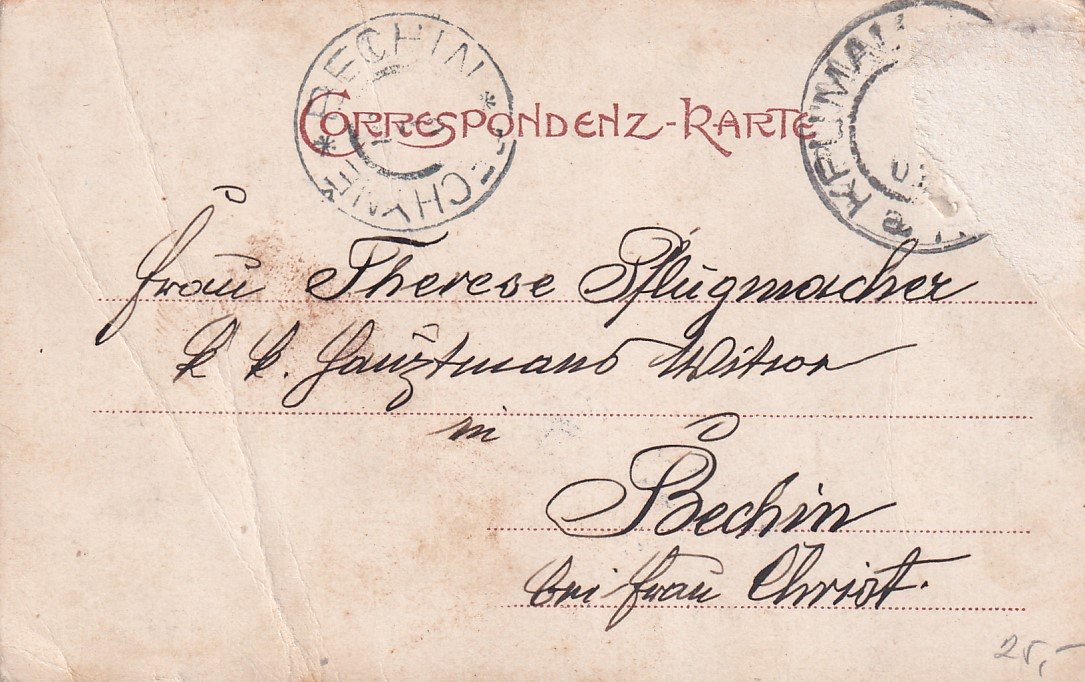 BECHIN * BECHYNĚ *
KRUMAU
CORRESPONDENZ-KARTE
Frau Therese Pflugmacher
k k. Hauptmans Witwe
in
Bechin
bei Frau Christ.
25,-